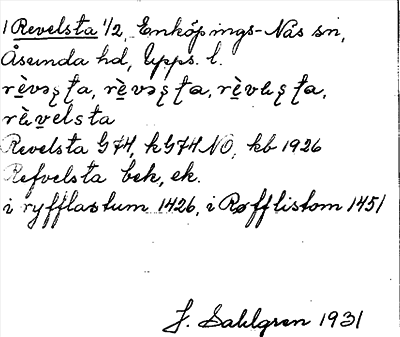 1 Revelsta 1/2, Enköpings-Näs sn,
Åsunda hd, Upps. l.
rèvəʂʈa, rèvəʂʈa, rèvɐʂʈa,
rèvelsta
Revelsta G7H, kG7H NO, kb 1926
Refvelsta bek, ek.
i ryfflastum 1426, i Røfflistom 1451
J. Sahlgren 1931